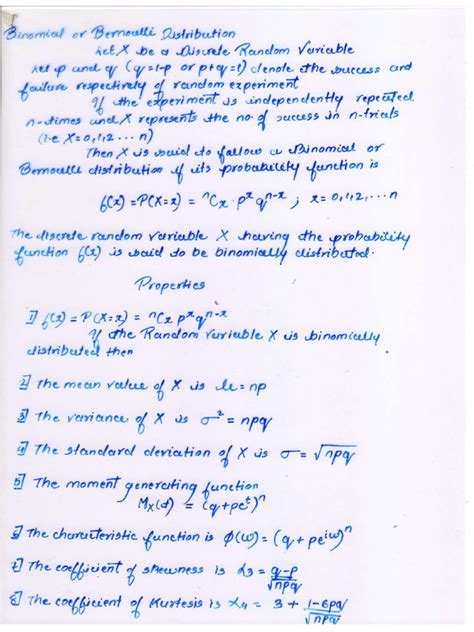 Binomial or Bernoulli Distribution
Let X be a Discrete Random Variable
Let p and q (q=1-p or p+q=1) denote the success and
failure respectively of random experiment
If the experiment is independently repeated
n-times and X represents the no of success in n-trials
(i.e X=0,1,2 ... n)
Then X is said to follow a Binomial or
Bernoulli distribution if its probability function is
f(x) = P(X=x) = ⁿCₓ · pˣ qⁿ⁻ˣ ; x = 0,1,2,... n
The discrete random variable X having the probability
function f(x) is said to be binomially distributed.
Properties
1] f(x) = P(X=x) = ⁿCₓ pˣ qⁿ⁻ˣ
If the Random variable X is binomially
distributed then
2] The mean value of X is μ = np
3] The variance of X is σ² = npq
4] The standard deviation of X is σ = √npq
5] The moment generating function
Mₓ(t) = (q+peᵗ)ⁿ
6] The characteristic function is φ(ω) = (q + pe^{iω})ⁿ
7] The coefficient of skewness is α₃ = (q-p)/√npq
8] The coefficient of Kurtosis is α₄ = 3 + (1-6pq)/√npq